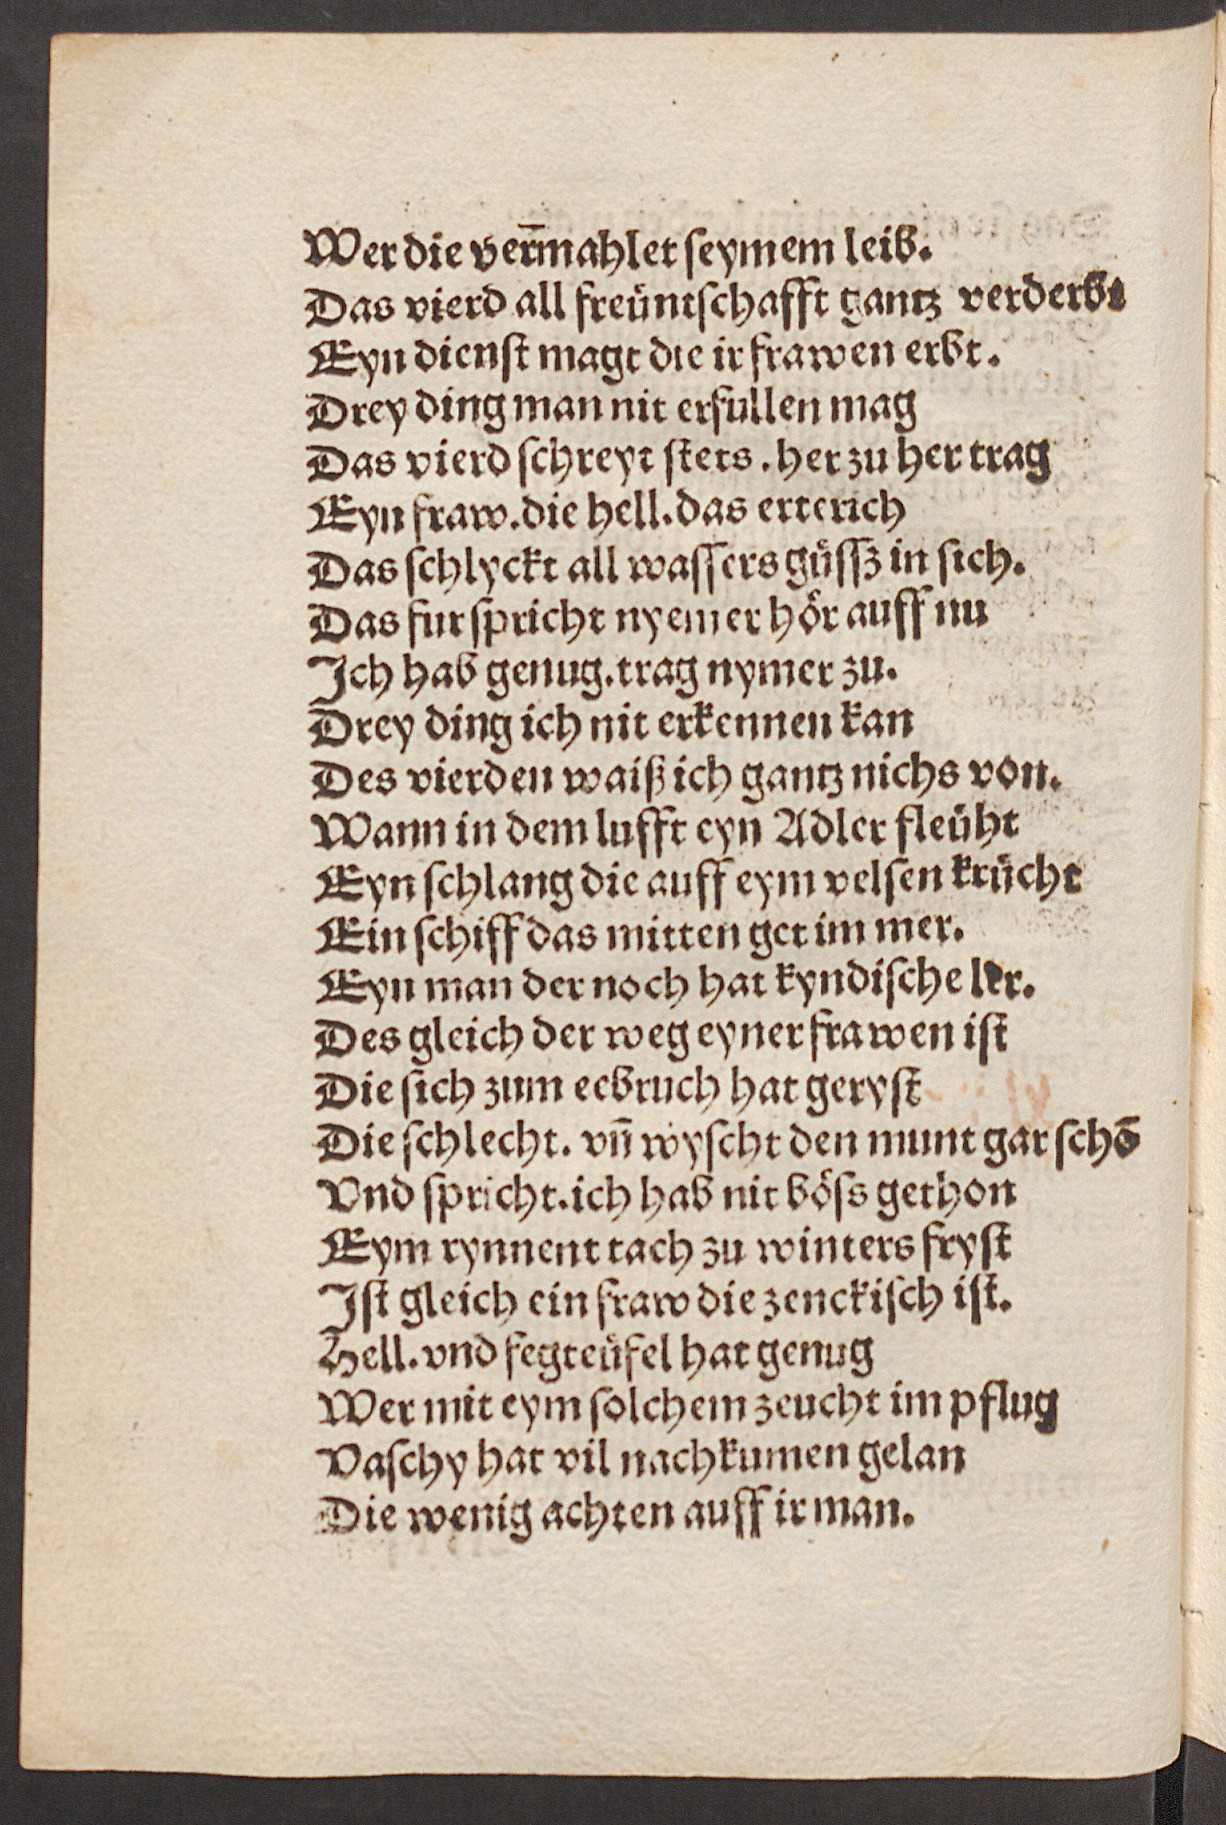 Wer die verm̄ahlet ſeymem leib.
Das vierd all freüntſchafft gantz verderbt
Eyn dienſt magt die ir frawen erbt.
Drey ding man nit erfullen mag
Das vierd ſchreyt ſtets. her zu her trag
Eyn fraw. die hell. das erterich
Das ſchlyckt all waſſers güſſz in ſich.
Das fur ſpricht nyemer hör auff nu
Ich hab genug. trag nymer zu.
Drey ding ich nit erkennen kan
Des vierden waiß ich gantz nichs von.
Wann in dem lufft eyn Adler fleüht
Eyn ſchlang die auff eym velſen krücht
Ein ſchiff das mitten get im mer.
Eyn man der noch hat kyndiſche ler.
Des gleich der weg eyner frawen iſt
Die ſich zum eebruch hat geryſt
Die ſchlecht. vn̄ wyſcht den munt gar ſchō
Vnd ſpricht. ich hab nit böſs gethon
Eym rynnent tach zu winters fryſt
Iſt gleich ein fraw die zenckiſch iſt.
Hell. vnd fegteüfel hat genug
Wer mit eym ſolchem zeucht im pflug
Vaſchy hat vil nachkumen gelan
Die wenig achten auff ir man.